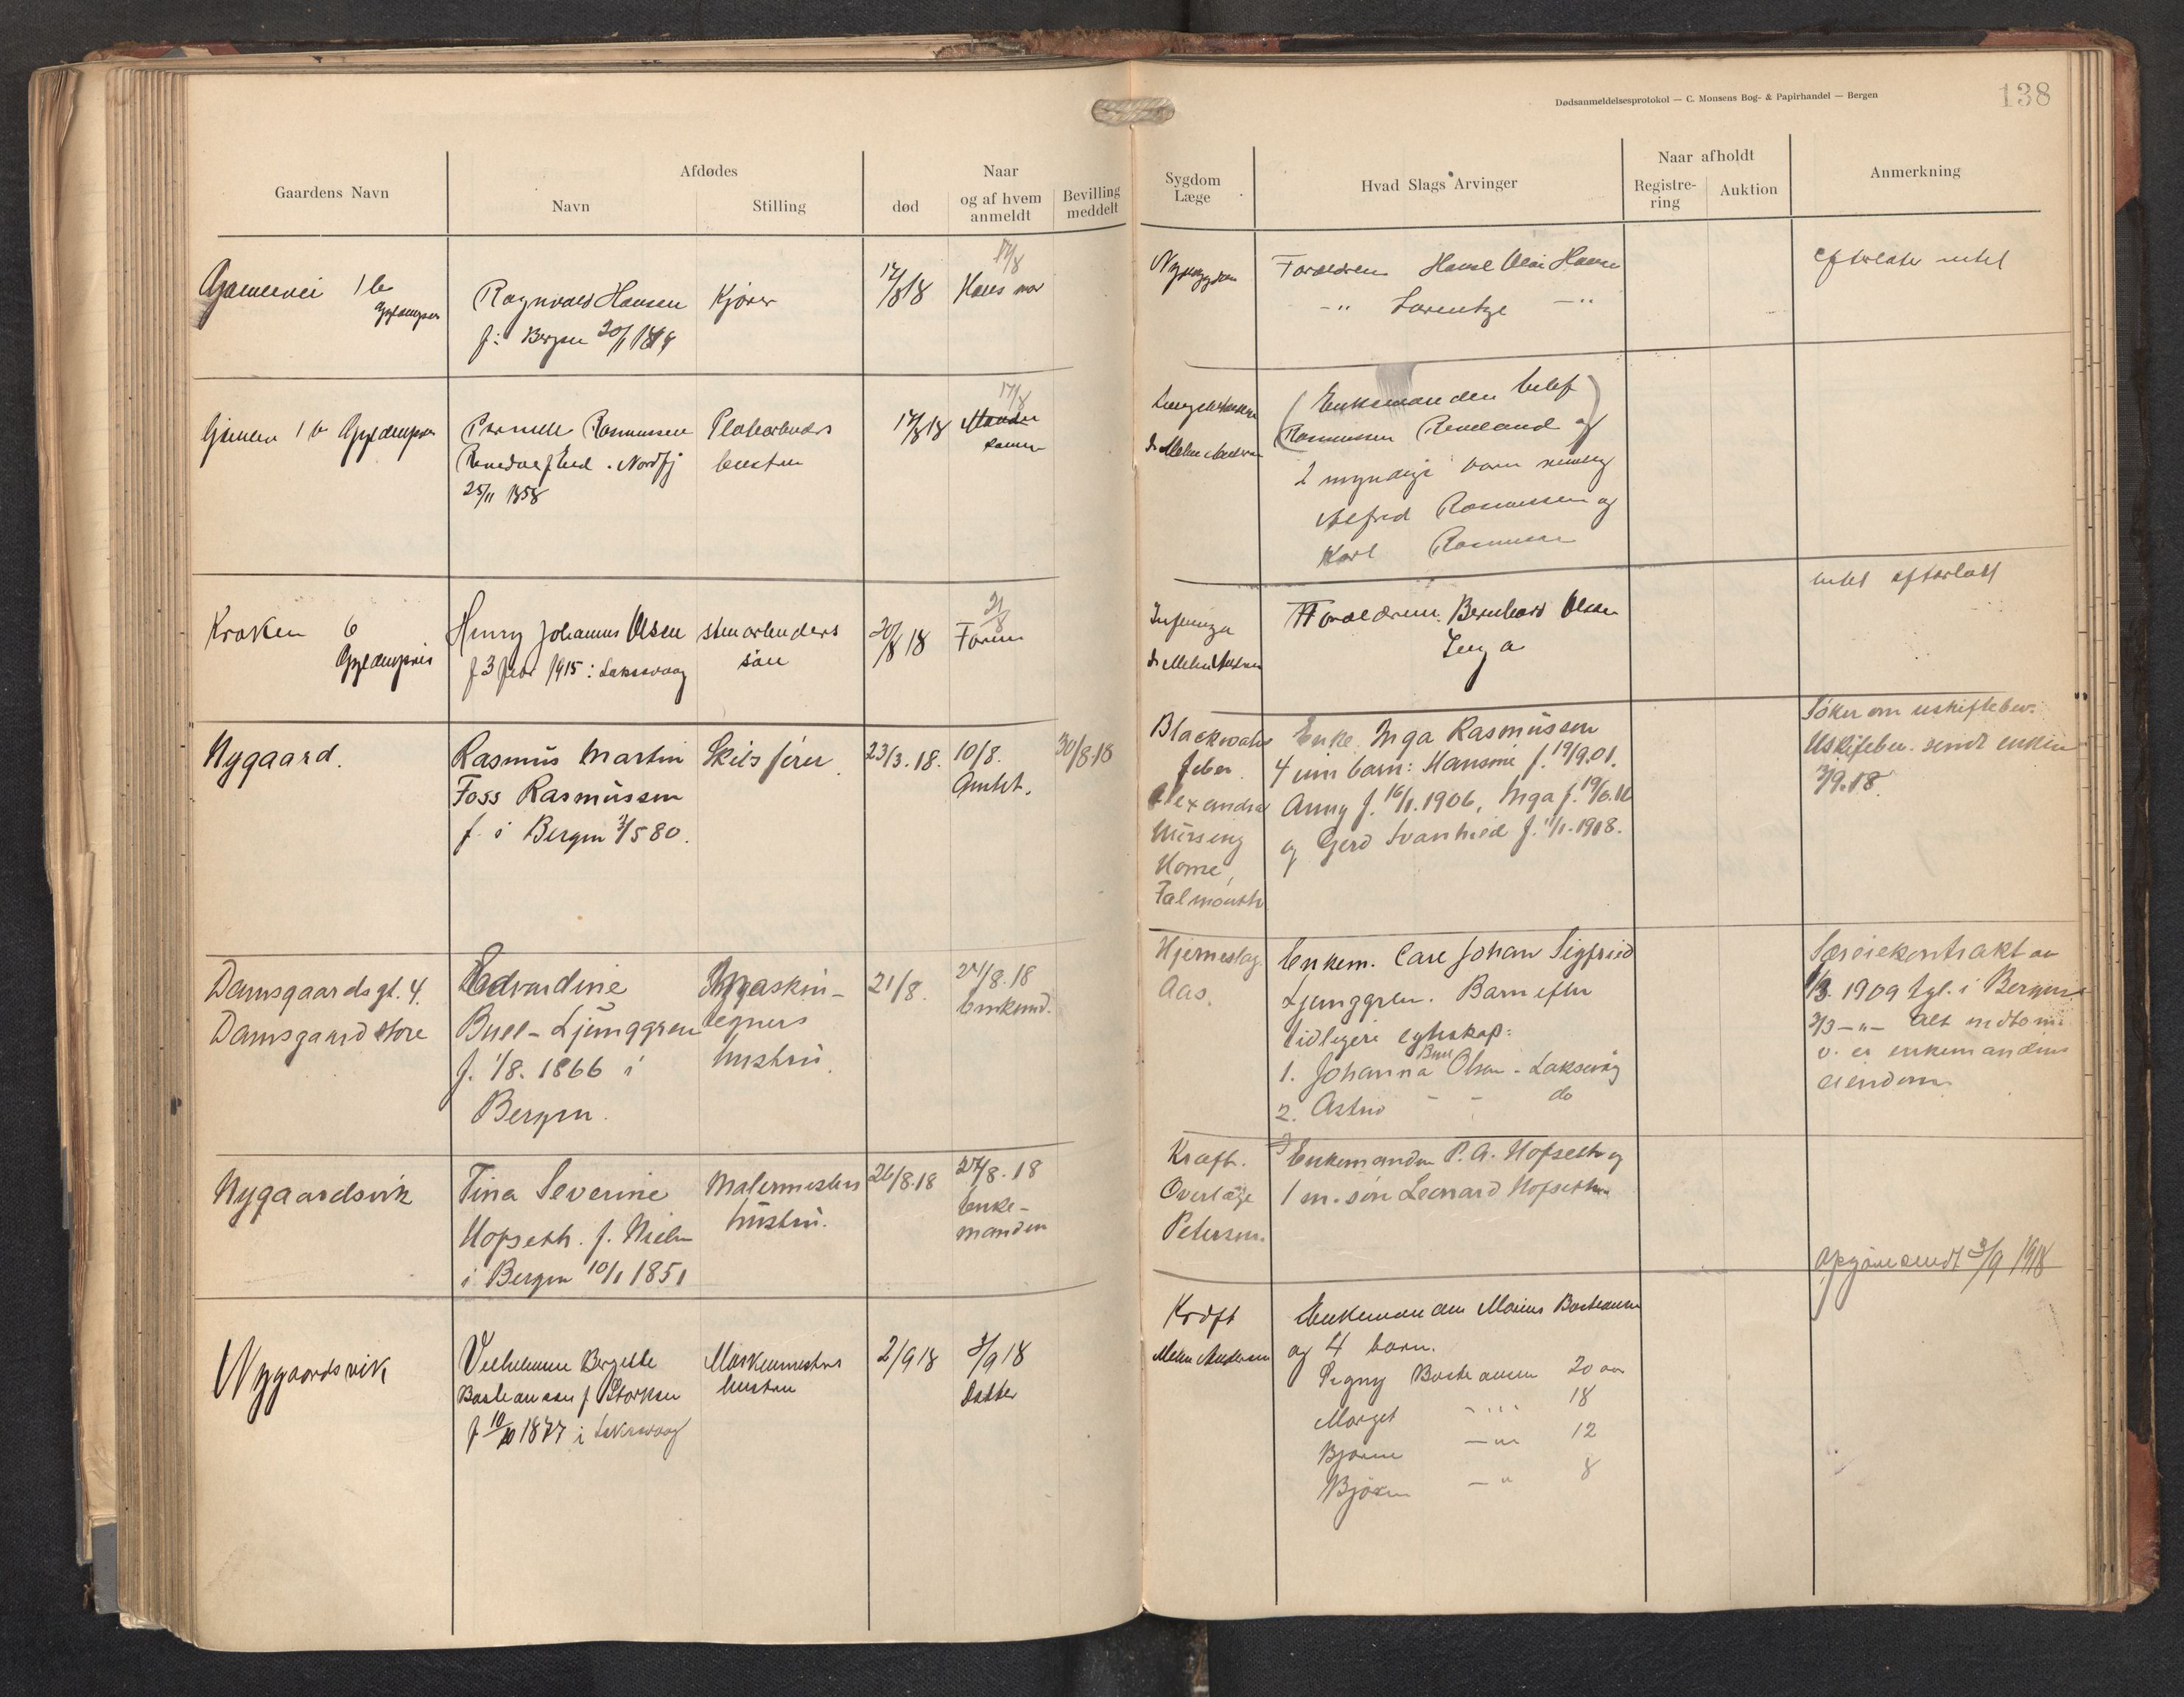 Dødsanmeldelsesprotokol — C. Monsens Bog- & Papirhandel — Bergen
138
Gaardens Navn
Afdødes
Navn
Stilling
Naar
død
og af hvem anmeldt
Bevilling meddelt
Sygdom Læge
Hvad Slags Arvinger
Naar afholdt
Registrering
Auktion
Anmerkning
1 b
Gyldenpris
Ragnvald Hansen
f i Bergen 20/1
Kjører
17/8 18
17/8
Hans mor
Forældren
Hansen
-"- Lorentze -"-
efterlater intet
1 b Gyldenpris
Rasmussen
Nordfj
25/11 1858
hustru
17/8 18
17/8
(Enkemanden
Rasmussen og)
2 myndige barn nemlig
Alfred Rasmussen og
Karl Rasmussen
Kroken 6
Gyldenpris
Henry Johannes Olsen
f 3 febr 1915 i Laksevaag
stenarbeiders
søn
20/8 18
21/8
Faren
Dr Mehn Andersen
Forældrene Bernhard Olsen
Inga
intet efterlatt
Nygaard.
Rasmus Martin
Foss Rasmussen
f. i Bergen 3/5 80.
Skibsfører
23/3.18.
10/8.
Amtet.
30/8.18
Blackwater
feber
Alexandra
Nursing
Home,
Falmouth
Enke Inga Rasmussen
4 um barn: Hansine f. 19/9.01.
Anny f. 16/1.1906, Inga f. 19/6.16
og Gerd Svanhild f. 11/1.1918.
Søker om uskiftebev.
Uskiftebev. sendt enken
3/9.18.
Damsgaardsgt. 4.
Damsgaard store
Edvardine
Bull-Ljunggren
f. 1/8. 1866 i
Bergen.
hustru.
21/8.
21/8.18
Enkemd.
Hjerneslag.
Aas.
Enkem. Carl Johan Sigfried
Ljunggren. Barn efter
tidligere egteskap:
1. Johanna Bull Olsen - Laksevåg
2. Astrid - - do
Særeiekontrakt av
1/3. 1909 tgl. i Bergen
3/3 -"- Alt indbo m.
v. er enkemandens
eiendom.
Nygaardsvik
Tina Severine
Hopseth. f. Nielsen
i Bergen 10/1 1851
Malermesters
hustru.
26/8.18
27/8.18
Enke-
manden
Kræft.
Overlæge
Petersen.
Enkemanden P. A. Hofseth og
1 m. søn Leonard Hofseth
Nygaardsvik
Vilhelmine Bergitte
Bastiansen f. Storksen
f 10/10 1877 i Laksevaag
Maskinmesters
hustru
2/9 18
3/9 18
Datter
Kræft
Mehn Andersen
Enkemanden Marius Bastiansen
og 4 barn.
Signy Bastiansen 20 aar
Marget -"- 18
Bjarne -"- 12
Bjørn -"- 8
sendt 3/9 1918